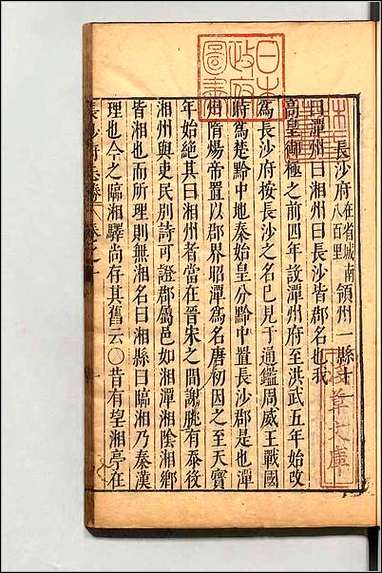 長沙府在省城南八百里領州一縣十一
曰潭州曰湘州曰長沙皆郡名也我
高皇御極之前四年改潭州府至洪武五年始改
爲長沙府按長沙之名已見于通鑑周威王戰國
時爲楚黔中地秦始皇分黔中置長沙郡是也潭
州隋煬帝置以郡界昭潭爲名唐初因之至天寶
年始絕其曰湘州者當在晉宋之間謝朓有忝役
湘州與吏民別詩可證郡屬邑如湘潭湘陰湘鄉
皆湘也而所理則無湘名曰湘縣曰臨湘乃秦漢
理也今之臨湘驛尚存其舊云〇昔有望湘亭在
長沙府
日本政府圖書
文庫